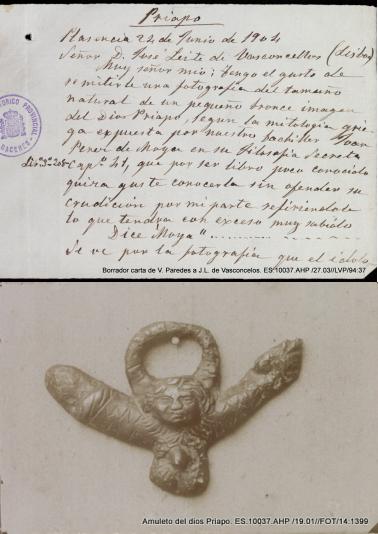 Priapo
Plasencia 22 de Junio de 1904
Señor D. José Leite de Vasconcellos (Lisboa)
Muy señor mio: tengo el gusto de
remitirle una fotografia del tamaño
natural de un pequeño bronce imagen
del Dios Priapo, segun la mitologia grie-
ga expuesta por nuestro bachiller Juan
Perez de Moya en su Filosofia Secreta
Capº 41, que por ser libro poco conocido
quiza guste conocerla sin ofender su
erudicion por mi parte refiriendole
lo que tendra con exceso muy sabido
Dice Moya "
Se ve por la fotografia que el idolo
HISTORICO PROVINCIAL
CACERES
Borrador carta de V. Paredes a J.L. de Vasconcelos. ES.10037.AHP /27.03//LVP/94:37
Amuleto del dios Priapo. ES.10037.AHP /19.01//FOT/14:1399